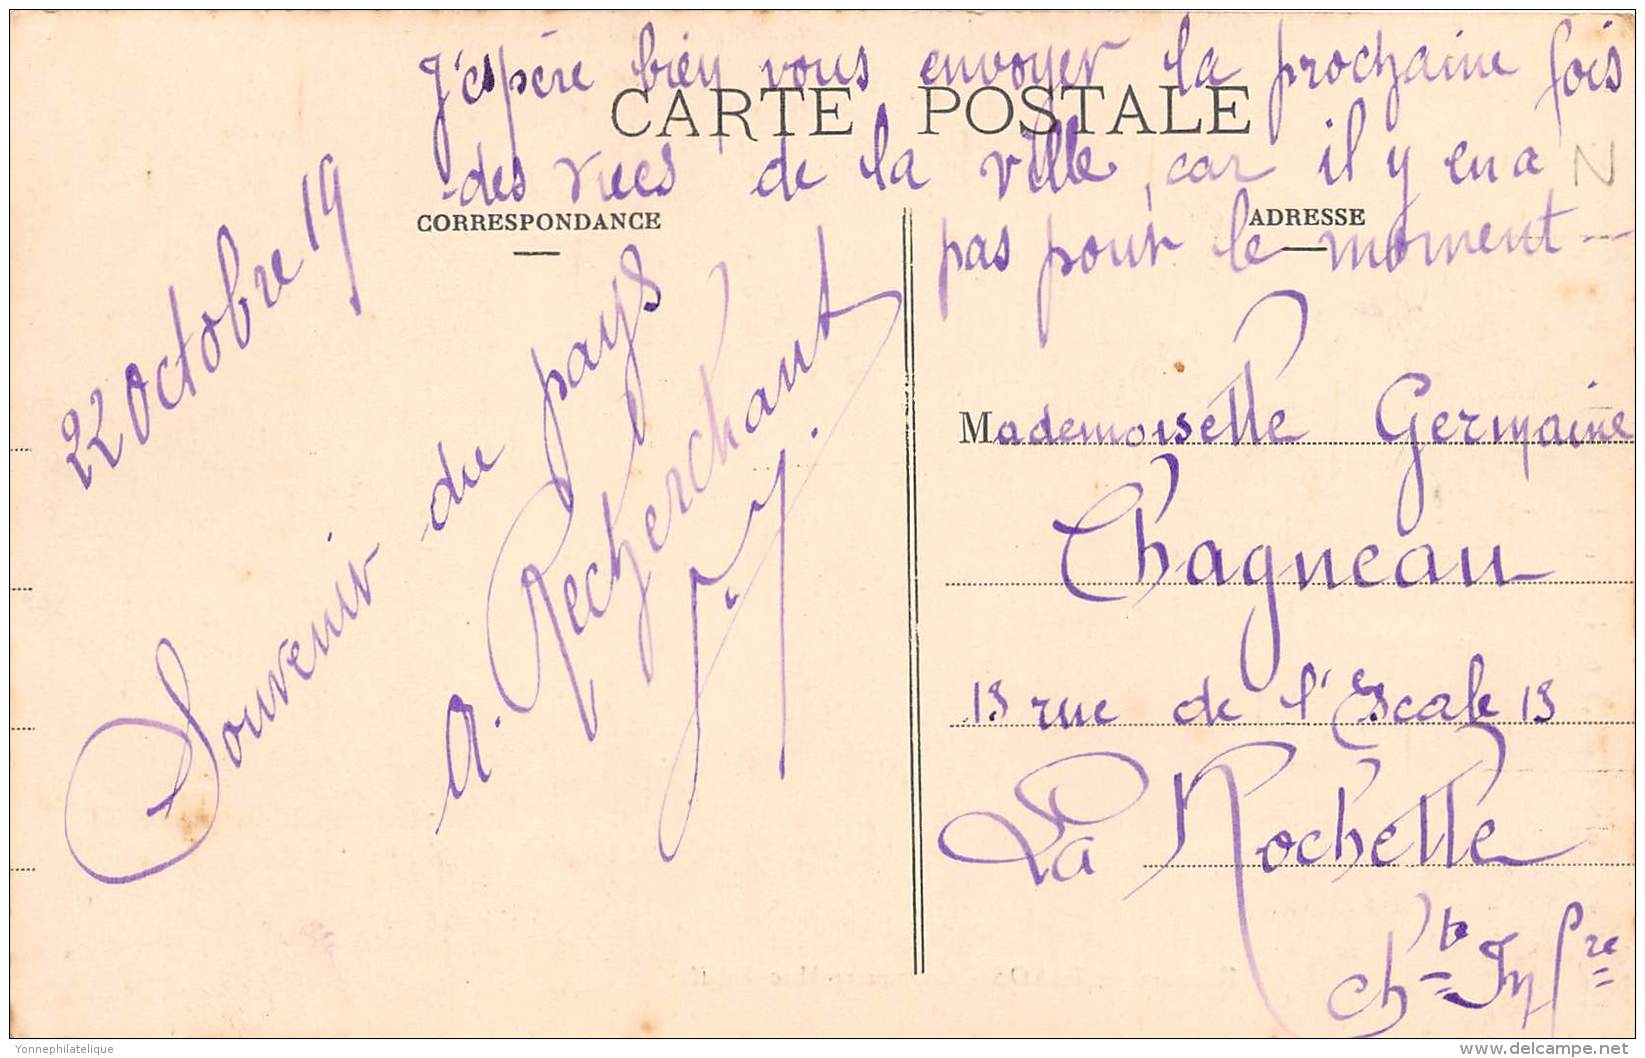 J'espère bien vous envoyer la prochaine fois
CARTE POSTALE
des vues de la ville, car il y en a
N
CORRESPONDANCE
ADRESSE
pas pour le moment -
22 Octobre 19
Souvenir du pays
a. Recherchant
Mademoiselle Germaine
Chagneau
13 rue de l'Escale 13
La Rochelle
Ch^te Inf^re
Yonnephilatelique
www.delcampe.net